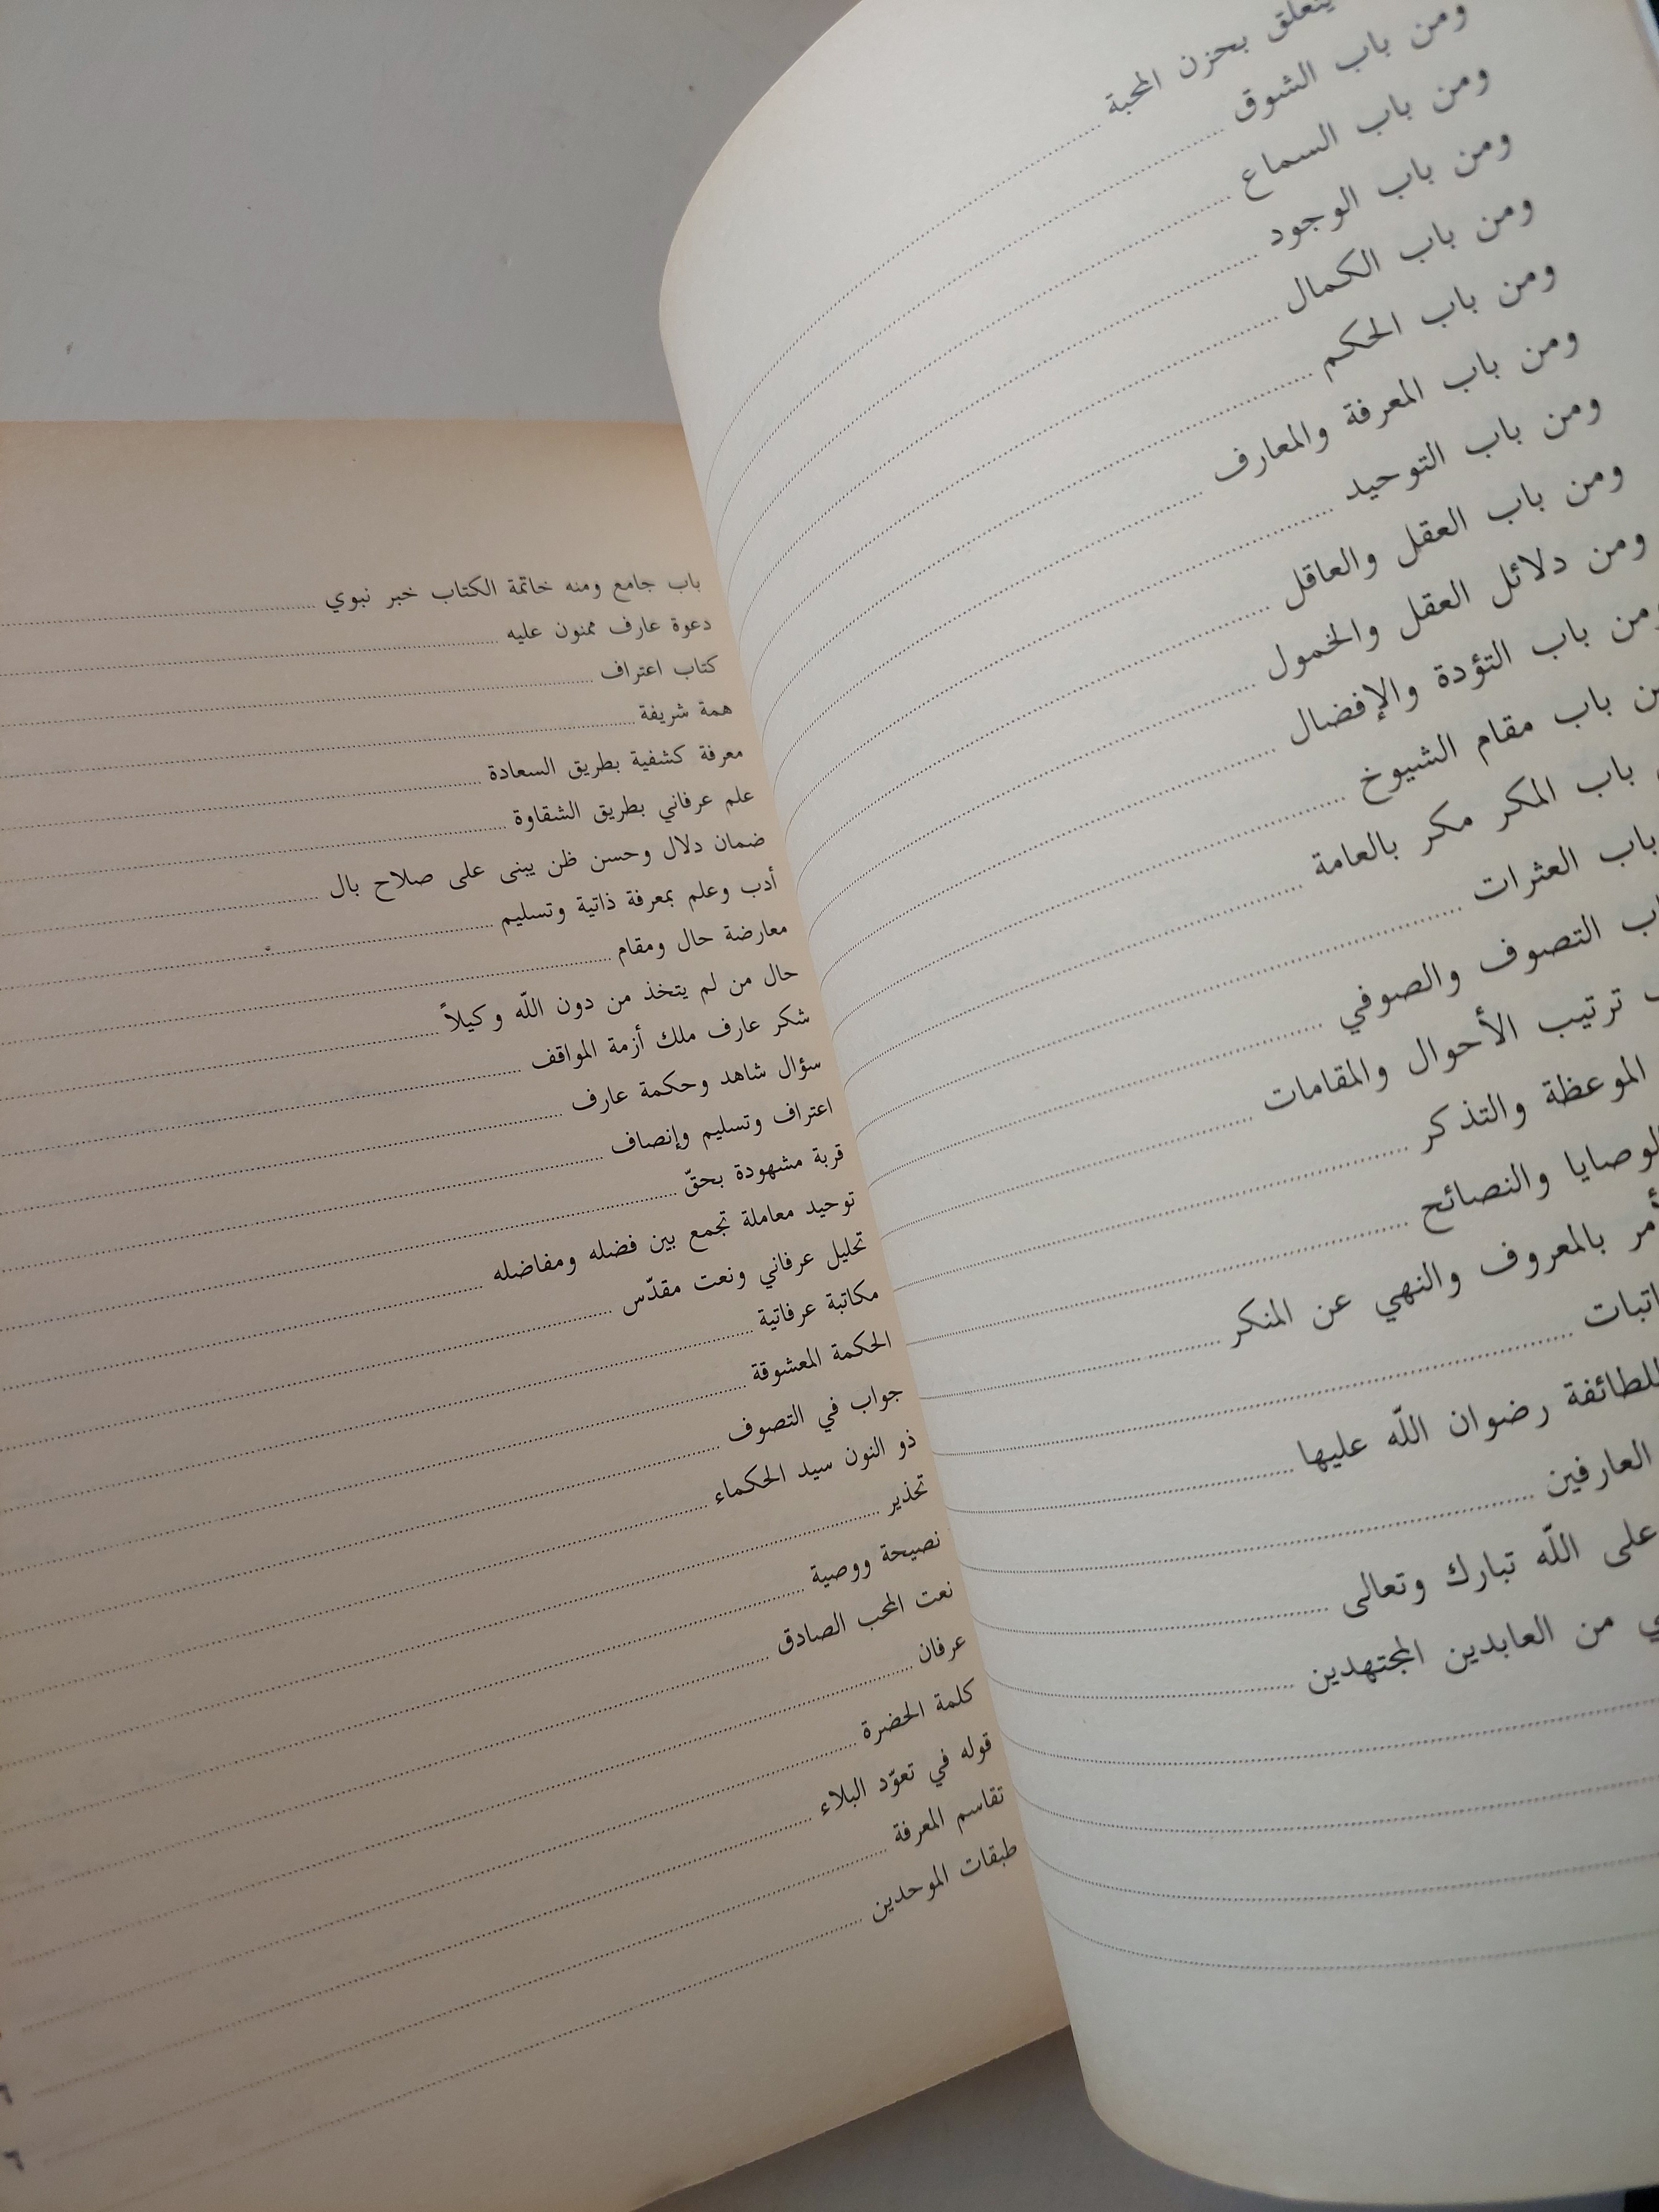 يتعلق بحزن المحبة
ومن باب الشوق
ومن باب السماع
ومن باب الوجود
ومن باب الكمال
ومن باب الحكم
ومن باب المعرفة والمعارف
ومن باب التوحيد
ومن باب العقل والعاقل
ومن دلائل العقل والخمول
ومن باب التؤدة والإفضال
باب مقام الشيوخ
باب المكر مكر بالعامة
باب العثرات
التصوف والصوفي
ترتيب الأحوال والمقامات
الموعظة والتذكر
الوصايا والنصائح
بالمعروف والنهي عن المنكر
للطائفة رضوان اللّه عليها
العارفين
على اللّه تبارك وتعالى
من العابدين المجتهدين
باب جامع ومنه خاتمة الكتاب خبر نبوي
دعوة عارف ممنون عليه
كتاب اعتراف
همة شريفة
معرفة كشفية بطريق السعادة
علم عرفاني بطريق الشقاوة
ضمان دلال وحسن ظن يبنى على صلاح بال
أدب وعلم بمعرفة ذاتية وتسليم
معارضة حال ومقام
حال من لم يتخذ من دون اللّه وكيلاً
شكر عارف ملك أزمة المواقف
سؤال شاهد وحكمة عارف
اعتراف وتسليم وإنصاف
قربة مشهودة بحقّ
توحيد معاملة تجمع بين فضله ومفاضله
تحليل عرفاني ونعت مقدّس
مكاتبة عرفاتية
الحكمة المعشوقة
جواب في التصوف
ذو النون سيد الحكماء
تحذير
نصيحة ووصية
نعت المحب الصادق
عرفان
كلمة الحضرة
قوله في تعوّد البلاء
تقاسم المعرفة
طبقات الموحدين